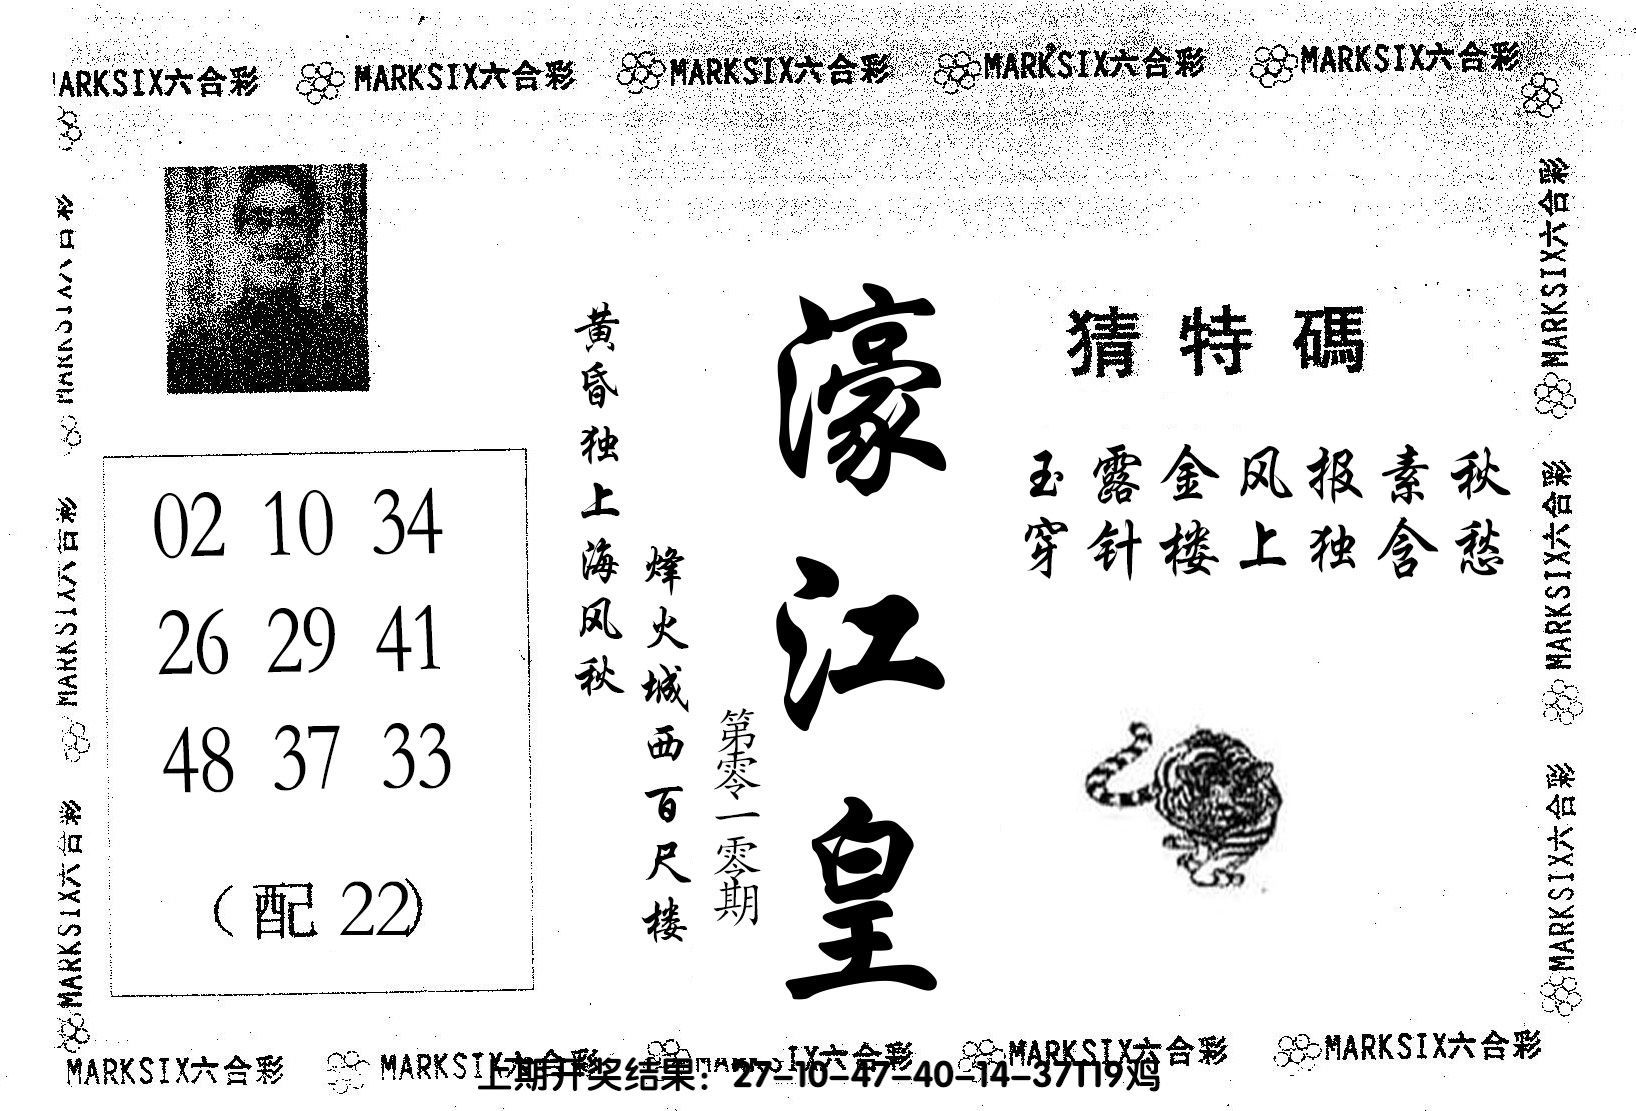 MARKSIX六合彩 MARKSIX六合彩 MARKSIX六合彩 MARKSIX六合彩 MARKSIX六合彩
MARKSIX六合彩
MARKSIX六合彩
MARKSIX六合彩
MARKSIX六合彩
MARKSIX六合彩
MARKSIX六合彩
02 10 34
26 29 41
48 37 33
(配 22)
烽火城西百尺楼
黄昏独上海风秋
第零一零零期
濠江皇
猜特碼
玉露金风报素秋
穿针楼上独含愁
MARKSIX六合彩 MARKSIX六合彩 MARKSIX六合彩 MARKSIX六合彩 MARKSIX六合彩
上期开奖结果：27-10-47-40-14-37T19鸡